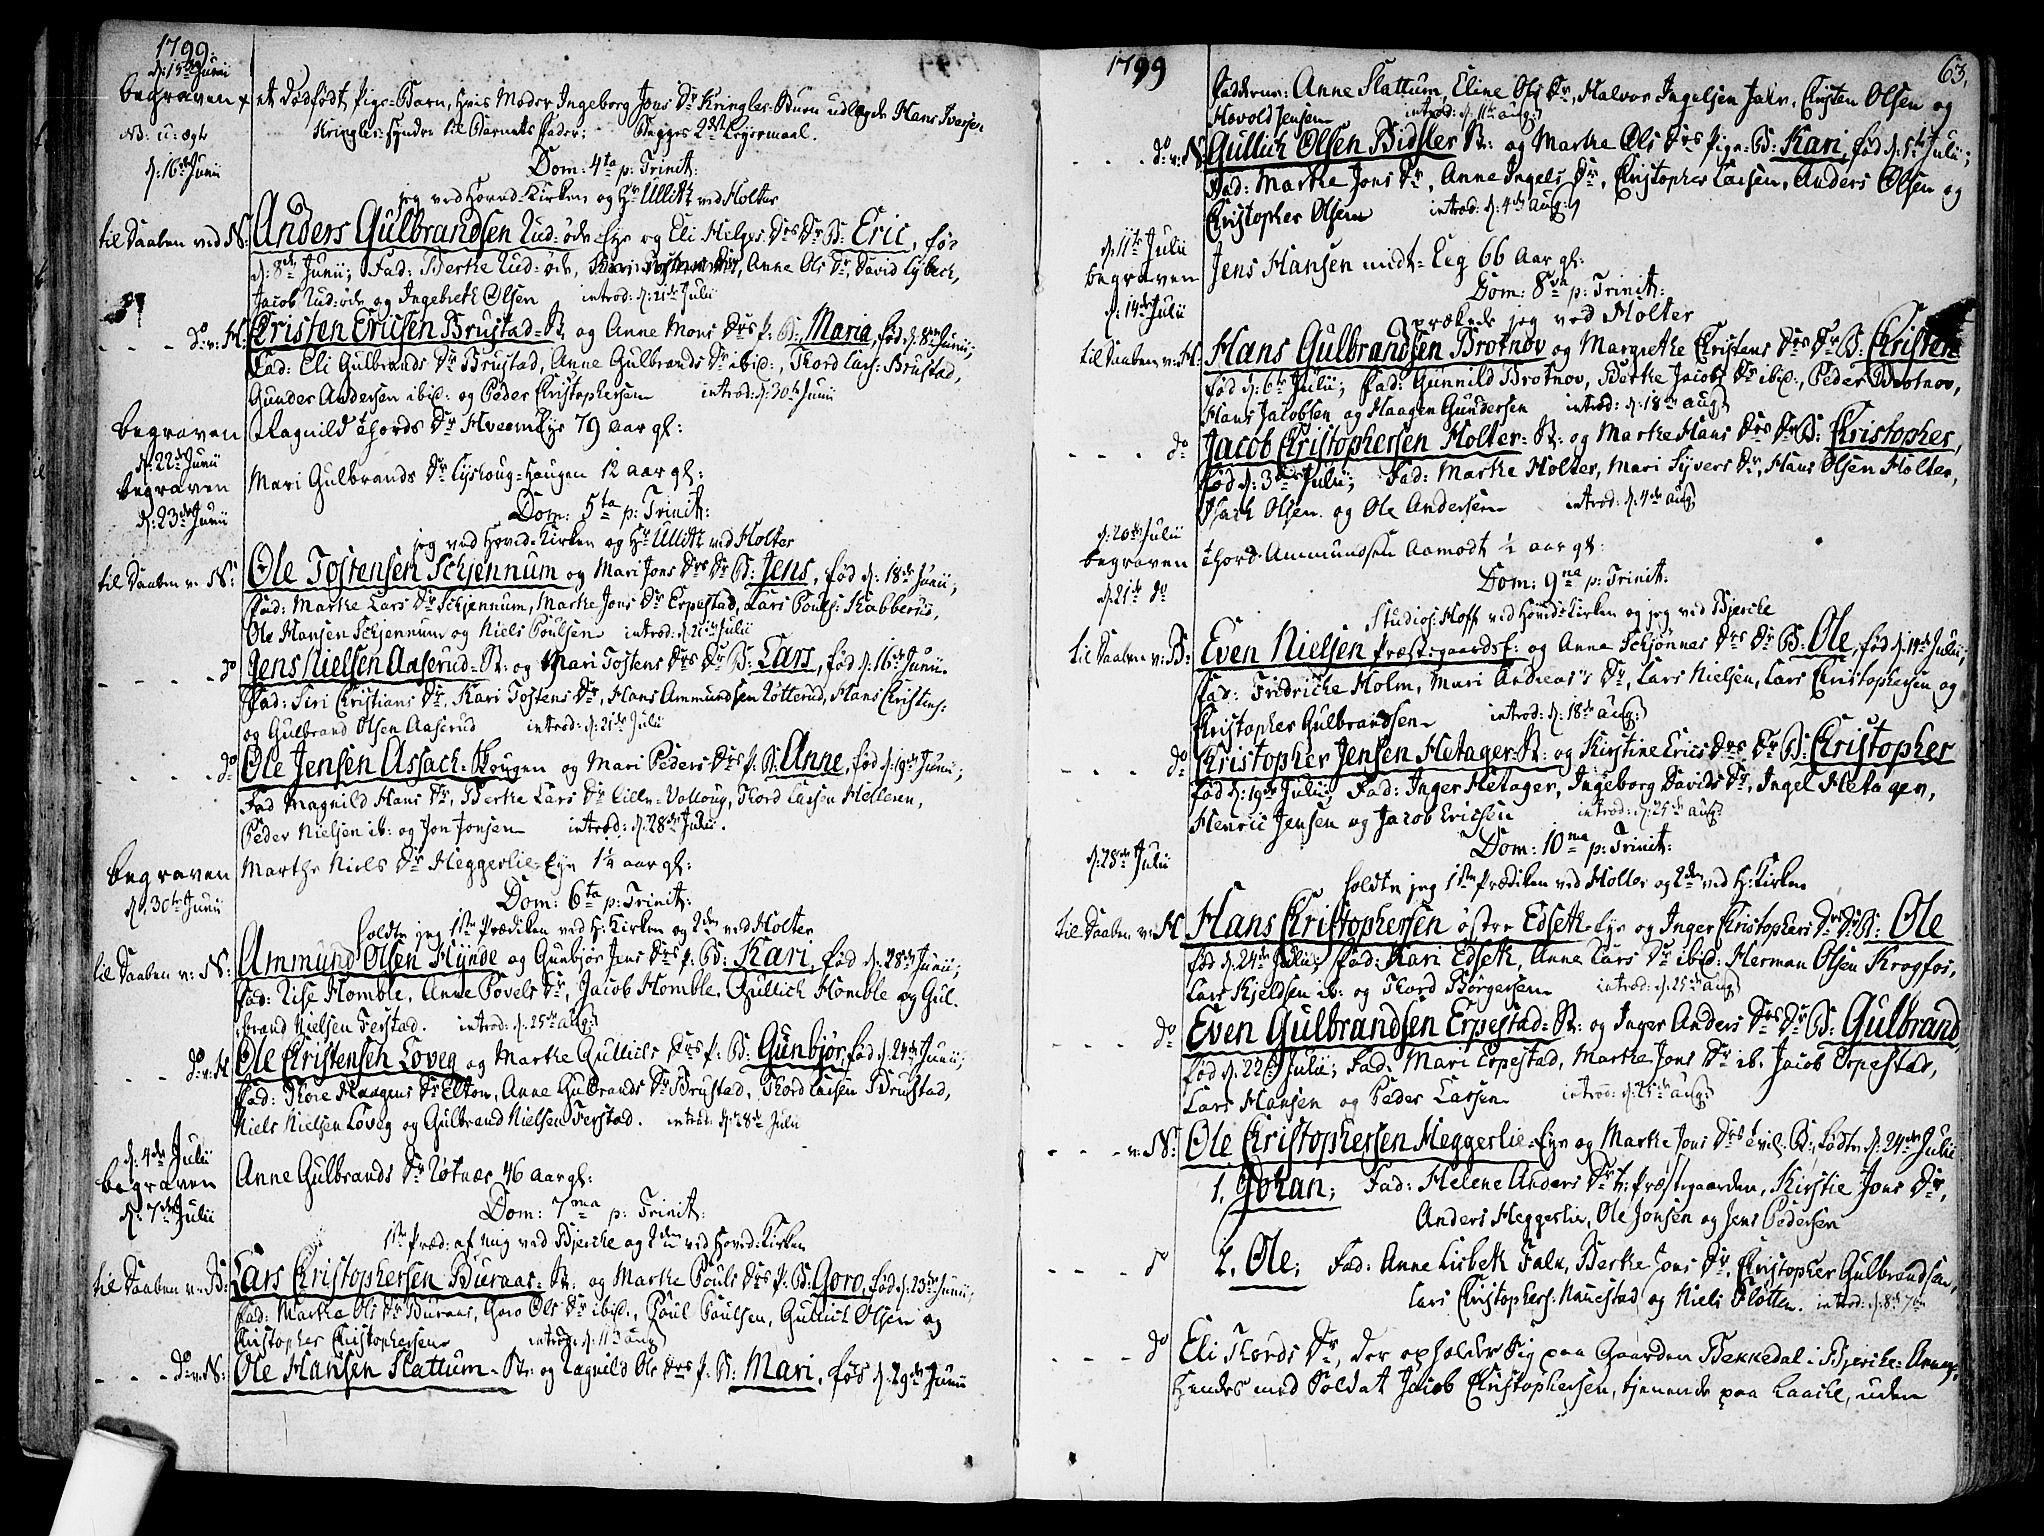 1799.
d: 15de Junii
begraven et dødfødt Pige-Barn, hvis Moder Ingeborg Jens Dr Kringler-Burn udlagde Hans Iversen
NB: u: ægte Kringler-Hynden til Barnets Fader; Begges 2det Leyermaal.
d: 16de Junii Dom: 4ta p: Trinit:
jeg ved Hoved-Kirken og Hr Ullitz ved Holter
til Daaben ved N: Anders Gulbrandsen Rud-øde-Eye og Eli Helges Drs Dr B: Eric, fød
d: 8de Junii; Fad: Berthe Rud-øde, Anne Ols Dr, David Lybeck,
Jacob Rud-øde og Ingebreth Olsen introd: d: 21de Julii
do v: H: Christen Ericsen Brustad-B: og Anne Mons Drs P: B: Maria, fød d: 8de Junii;
Fad: Eli Gulbrands Dr Brustad, Anne Gulbrands Dr ibid:, Thord Lars: Brustad,
Gunder Andersen ibid: og Peder Christophersen introd: d: 30te Junii
begraven Ragnild Thords Dr Hveem Eye 79 aar gl:
d: 22de Junii
begraven Mari Gulbrands Dr Lyshoug-Haugen 12 aar gl:
d: 23de Junii Dom: 5ta p: Trinit:
jeg ved Hoved-Kirken og Hr Ullitz ved Holter
til Daaben v: N: Ole Tostensen Schjennum og Mari Jons Drs Dr B: Jens, fød d: 18de Junii;
Fad: Marthe Lars Dr Schjennum, Marthe Jons Dr Erpestad, Lars Pouls: Kabberud,
Ole Hansen Schjennum og Niels Poulsen introd: d: 21de Julii
do Jens Nielsen Aaserud-B: og Mari Tostens Drs Dr B: Lars, fød d: 16de Junii.
Fad: Siri Christians Dr, Kari Tostens Dr, Hans Ammundsen Rotterud, Hans Christens:
og Gulbrand Olsen Aaserud introd: d: 21de Julii
do Ole Jensen Assach-Hougen og Mari Peders Drs P: B: Anne, fød d: 19de Junii;
Fad Magnild Hans Dr, Berthe Lars Dr Lille-Volloug, Thord Larsen Helleren,
Peder Nielsen ib: og Jon Jonsen introd: d: 28de Julii.
begraven Marthe Niels Dr Heggerlie-Eye 1¼ aar gl:
d: 30te Junii Dom: 6ta p: Trinit:
holdte jeg 1ste Prædiken ved H: Kirken og 2den ved Holter
til Daaben v: N: Ammund Olsen Hynde og Gunbjør Jens Drs P: B: Kari, fød d: 28de Junii;
Fad: Lise Homble, Anne Povels Dr, Jacob Homble, Gullich Homble og Gul-
brand Nielsen Ferstad. introd: d: 25de aug:
do v: H Ole Christensen Loveg og Marthe Gullichs Drs P: B: Gunbjør, fød d: 24de Junii;
Fad: Thore Haagens Dr Elton, Anne Gulbrands Dr Brustad, Thord Larsen Brustad,
Niels Nielsen Loveg og Gulbrand Nielsen Ferstad. introd: d: 28de Julii
d: 4de Julii
begraven Anne Gulbrands Dr Rotnes 46 aar gl:
d: 7de Julii Dom: 7ma p: Trinit:
1ste Præd: af mig ved Bjerche og 2den ved Hoved-Kirken
til Daaben v: B: Lars Christophersen Buraas-B: og Marthe Pouls Drs P: B: Goro, fød d: 23de Junii,
Fad: Marthe Ols Dr Buraas, Goro Ols Dr ibid:, Poul Poulsen, Gullich Olsen og
Christopher Christophersen introd: d: 11te aug:
do v: N: Ole Hansen Slattum-B: og Ragnild Ols Drs P: B: Mari, fød d: 29de Junii
1799 63.
Fadderne: Anne Slattum, Eline Ols Dr, Halvor Ingelsen Jaler, Christen Olsen og
Havold Jensen introd: d: 11te aug:
do v: N: Gullich Olsen Bidsler B: og Marthe Ols Drs Pige-B: Kari, fød d: 5te Julii;
Fad: Marthe Jons Dr, Anne Ingels Dr, Christopher Larsen, Anders Olsen og
Christopher Olsen introd: d: 4de aug:
d: 11te Julii
begraven Jens Hansen midt-Eeg 66 aar gl:
d: 14de Julii Dom: 8va p: Trinit:
prækede jeg ved Holter
til Daaben v: H: Hans Gulbrandsen Brotnov og Margrethe Christens Drs Dr B: Christen
fød d: 6te Julii; Fad: Gunnild Brotnov, Berthe Jacobs Dr ibid:, Peder Brotnov,
Hans Jacobsen og Haagen Gundersen introd: d: 18de aug:
do Jacob Christophersen Holter-B: og Marthe Hans Drs Dr B: Christopher,
fød d: 3die Julii; Fad: Marthe Holter, Mari Syvers Dr, Hans Olsen Holter,
Isach Olsen og Ole Andersen introd: d: 4de aug:
d: 20de Julii
begraven Thord Ammundsen Aamodt ½ aar gl:
d: 21de do Dom: 9na p: Trinit:
Studios: Hoff ved Hoved-Kirken og jeg ved Bjerche
til Daaben v: B: Even Nielsen Præstegaards: og Anne Schjønnes Drs Dr B: Ole, fød d: 14de Julii;
Fad: Fridriche Holm, Mari Andreas's Dr, Lars Nielsen, Lars Christophersen og
Christopher Gulbrandsen introd: d: 18de aug:
do Christopher Jensen Hetager-B: og Kirstine Erics Drs Dr B: Christopher
fød d: 19de Julii; Fad: Inger Hetager, Ingeborg Davids Dr, Ingel Hetager,
Henric Jensen og Jacob Ericsen introd: d: 25de aug:
d: 28de Julii Dom: 10ma p: Trinit:
holdte jeg 1ste Prædiken ved Holter og 2den ved H: Kirken
til Daaben v: H Hans Christophersen østre Edseth-Eye og Inger Christophers Drs Dr B: Ole
fød d: 24de Julii; Fad: Kari Edseth, Anne Lars Dr ibid: Herman Olsen Krogfos,
Lars Kjeldsen ib: og Thord Børgersen introd: d: 25de aug:
do Even Gulbrandsen Erpestad-B: og Inger Anders Drs Dr B: Gulbrand,
fød d: 22de Julii; Fad: Mari Erpestad, Marthe Jons Dr ib. Jacob Erpestad,
Lars Hansen og Peder Larsen introd: d: 25de aug:
v: N: Ole Christophersen Heggerlie-Eye og Marthe Jons Drs tvil: B: fødte d: 24de Julii
1. Johan; Fad: Helene Anders Dr v: Præstegaarden, Kirstie Jons Dr,
Anders Heggerlie, Ole Jonsen og Jens Pedersen
do 2. Ole; Fad: Anne Lisbeth Faln, Berthe Jons Dr, Christopher Gulbrandsen,
Lars Christophers: Nannestad og Niels Slotten. introd: d: 8de 7br
do Eli Thords Dr, der opholder Sig paa Gaarden Bekkedal i Bjerche-Annex,
hendes med Soldat Jacob Christophersen, tjenende paa Laache, uden